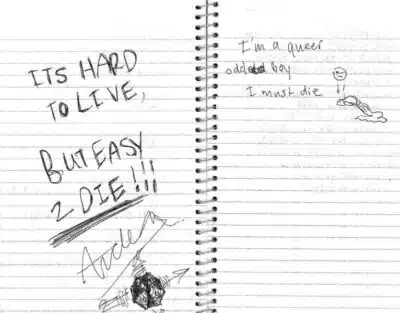 ITS HARD
TO LIVE,
BUT EASY
2 DIE!!!
I'm a queer
odd boy
I must die